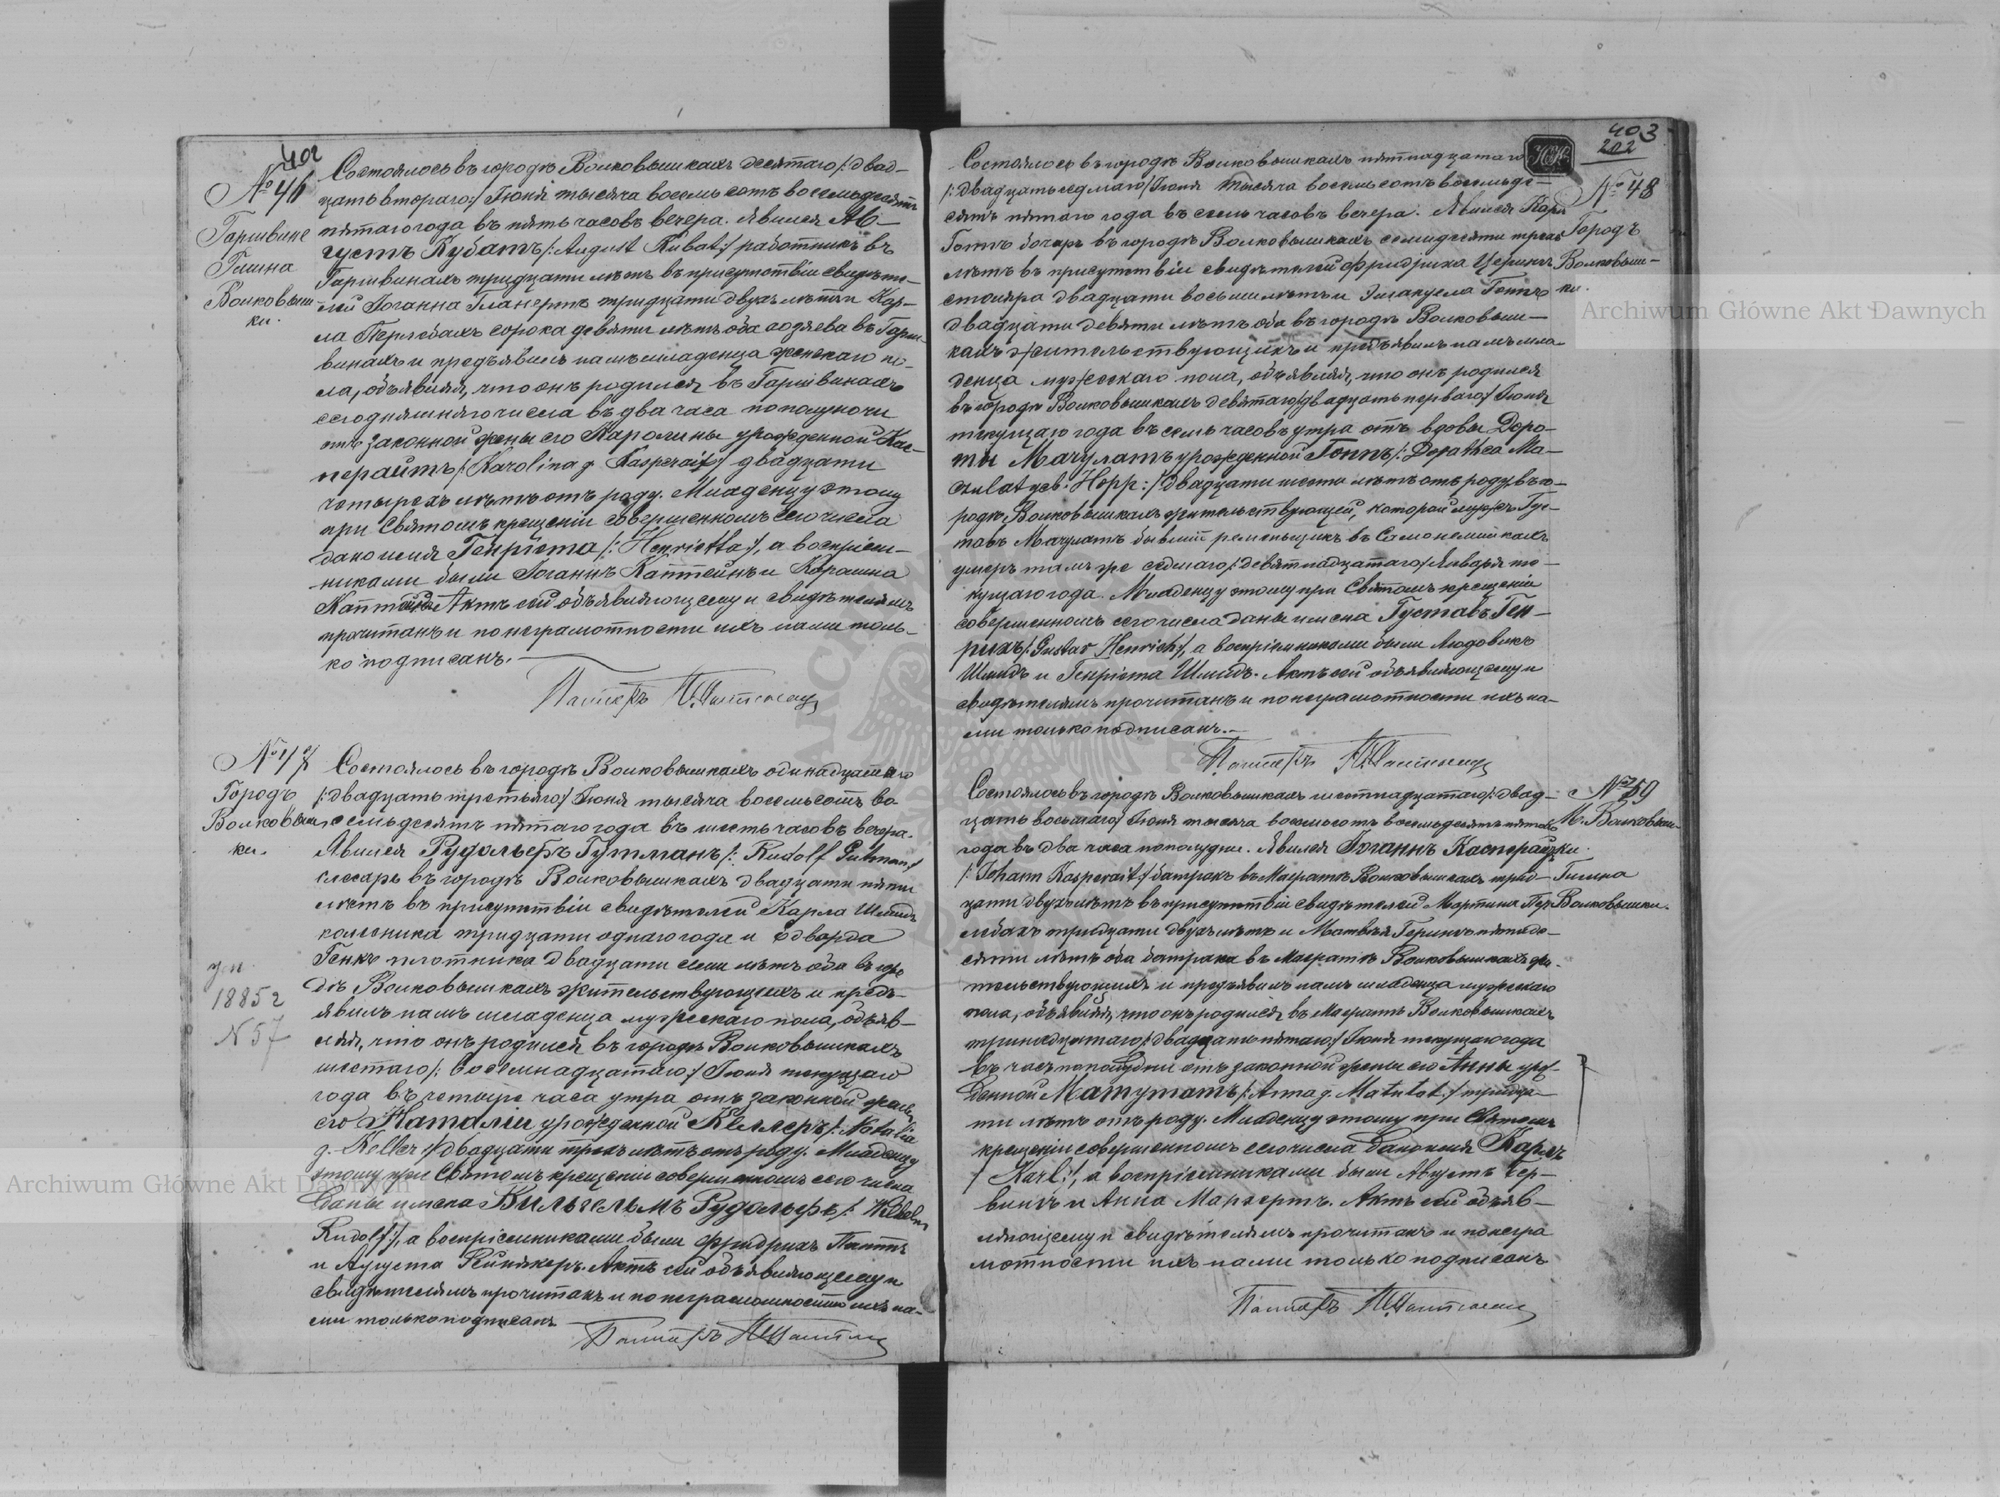 402
№ 46
Гаршвине
Гмина
Волковыш-
ки.
Состоялось въ городѣ Волковышкахъ десятаго /: двад-
цать втораго :/ Іюня тысяча восемь сотъ восемьдесятъ
пятаго года въ пять часовъ вечера. Явился Ав-
густъ Кубатъ /: August Kubat :/ работникъ въ
Гаршвинахъ тридцати лѣтъ въ присутствіи свидѣте-
лей Іоганна Гланертъ тридцати двухъ лѣтъ и Кар-
ла Перлебахъ сорока девяти лѣтъ оба
винахъ и предъявилъ намъ младенца женскаго по-
ла, объявляя, что онъ родился въ Гаршвинахъ
сегодняшняго числа въ два часа пополуночи
отъ законной жены его Каролины урожденной Кас-
перайтъ /: Karolina g. Kasperait :/ двадцати
четырехъ лѣтъ отъ роду. Младенцу этому
при Святомъ крещеніи совершенномъ сего числа
дано имя Генріета /: Henrietta :/, а воспріем-
никами были Іоганнъ Каптейнъ и Каролина
Актъ сей объявляющему и свидѣтелямъ
прочитанъ и по неграмотности ихъ нами толь-
ко подписанъ.
Пасторъ
№ 47
Городъ
Волковыш-
ки.
Состоялось въ городѣ Волковышкахъ одинадцатаго
/: двадцать третьяго :/ Іюня тысяча восемьсотъ во-
семьдесятъ пятаго года въ шесть часовъ вечера.
Явился Рудольфъ Гутманъ /: Rudolf Gutman :/
слесарь въ городѣ Волковышкахъ двадцати пяти
лѣтъ въ присутствіи свидѣтелей Карла Шмидъ
колесника тридцати однаго года и Едварда
Генке плотника двадцати семи лѣтъ оба въ горо-
дѣ Волковышкахъ жительствующихъ и предъ-
явилъ намъ младенца мужескаго пола, объяв-
ляя, что онъ родился въ городѣ Волковышкахъ
шестаго /: восемнадцатаго :/ Іюня текущаго
года въ четыре часа утра отъ законной жены
его Наталіи урожденной Келлеръ /: Natalia
g. Keller :/ двадцати трехъ лѣтъ отъ роду. Младенцу
этому при Святомъ крещеніи совершенномъ сего числа
даны имена Вильгельмъ Рудольфъ /: Wilhelm
Rudolf :/, а воспріемниками были Фридрихъ
и Августа Актъ сей объявляющему и
свидѣтелямъ прочитанъ и по неграмотности ихъ на-
ми только подписанъ
Пасторъ
ум.
1885 г
N 57
403
202
№ 48
Городъ
Волковыш-
ки.
Состоялось въ городѣ Волковышкахъ пятнадцатаго
/: двадцать седмаго :/ Іюня тысяча восемь сотъ восемьде-
сятъ пятаго года въ семь часовъ вечера. Явился Карлъ
Гоппъ бочаръ въ городѣ Волковышкахъ семидесяти трехъ
лѣтъ въ присутствіи свидѣтелей Фридриха
столяра двадцати восьми лѣтъ и Эмануела Гоппъ
двадцати девяти лѣтъ оба въ городѣ Волковыш-
кахъ жительствующихъ и предъявилъ намъ мла-
денца мужескаго пола, объявляя, что онъ родился
въ городѣ Волковышкахъ девятаго /: двадцать перваго :/ Іюня
текущаго года въ семь часовъ утра отъ вдовы Доро-
ты Мачулатъ урожденной Гоппъ /: Dorothea Ma-
czulat geb. Hopp :/ двадцати шести лѣтъ отъ роду въ го-
родѣ Волковышкахъ жительствующей, которой мужъ Гус-
тавъ Мачулатъ бывшій ременьщикъ въ
умеръ тамъ же седмаго /: девятнадцатаго :/ Января те-
кущаго года. Младенцу этому при Святомъ крещеніи
совершенномъ сего числа даны имена Густавъ Ген-
рихъ /: Gustav Henrich :/, а воспріемниками были Людовикъ
Шмидъ и Генріета Шмидъ. Актъ сей объявляющему и
свидѣтелямъ прочитанъ и по неграмотности ихъ на-
ми только подписанъ.
Пасторъ
№ 49
М. Волковыш-
ки.
Гмина
Волковышки.
Состоялось въ городѣ Волковышкахъ шестнадцатаго /: двад-
цать восьмаго :/ Іюня тысяча восемьсотъ восемьдесятъ пятаго
года въ два часа пополудни. Явился Іоганнъ Касперайтъ
/: Johann Kasperait :/ батракъ въ Маіратѣ Волковышкахъ трид-
цати двухъ лѣтъ въ присутствіи свидѣтелей Мартина Пер-
лебахъ тридцати двухъ лѣтъ и Матвѣя Герингъ пятиде-
сяти лѣтъ оба батрака въ Маіратѣ Волковышкахъ жи-
тельствующихъ и предъявилъ намъ младенца мужескаго
пола, объявляя, что онъ родился въ Маіратѣ Волковышкахъ
тринадцатаго /: двадцать пятаго :/ Іюня текущаго года
въ часъ пополудни отъ законной жены его Анны урож-
денной Матутатъ /: Anna g. Matutat :/ тридца-
ти лѣтъ отъ роду. Младенцу этому при Святомъ
крещеніи совершенномъ сего числа дано имя Карлъ
/: Karl :/, а воспріемниками были Августъ Гер-
винъ и Анна Маргертъ. Актъ сей объяв-
ляющему и свидѣтелямъ прочитанъ и по негра-
мотности ихъ нами только подписанъ
Пасторъ
Archiwum Główne Akt Dawnych
Archiwum Główne Akt Dawnych